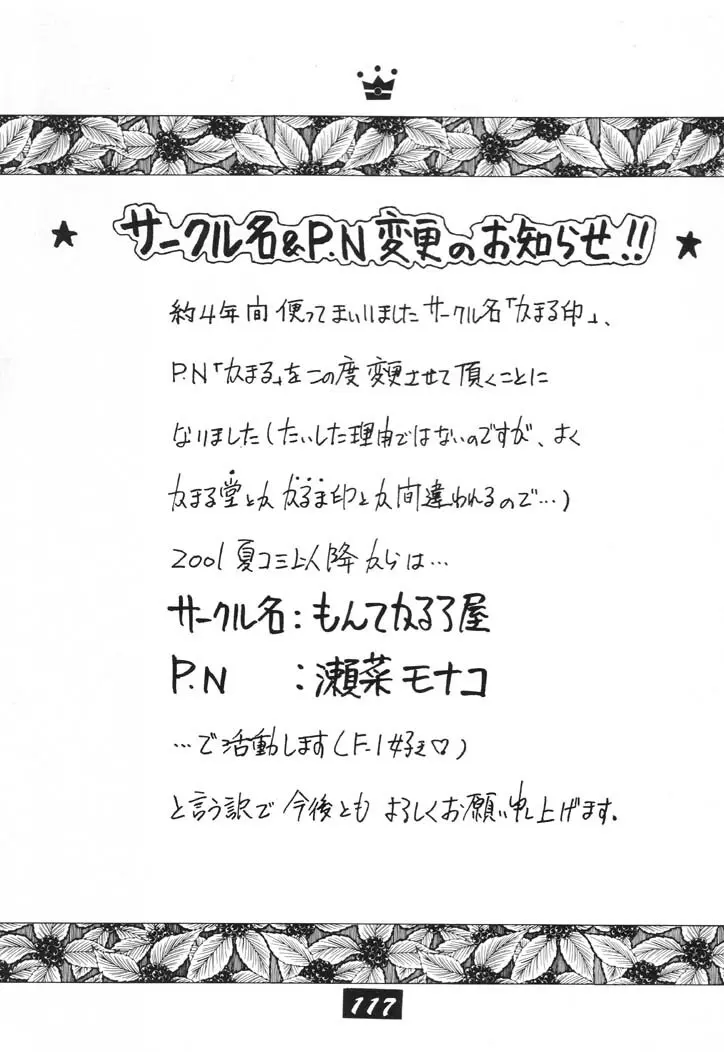 サークル名&P.N変更のお知らせ!!
約4年間使ってまいりましたサークル名「かまる印」、
P.N「かまる」をこの度変更させて頂くことに
なりました(たいした理由ではないのですが、よく
かまる堂とかかるま印とか間違われるので…)
2001夏コミ以降からは…
サークル名:もんてかるろ屋
P.N :瀬菜モナコ
…で活動します(F-1好き♡)
と言う訳で今後ともよろしくお願い申し上げます.
117